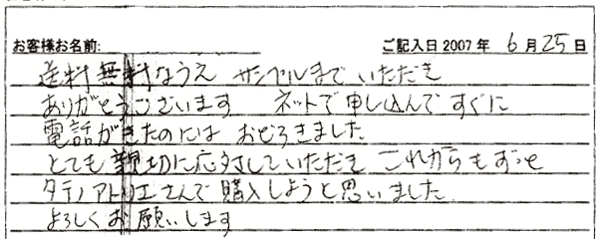 お客様お名前: ご記入日 2007年 6月 25日
送料無料なうえ サンプルまで いただき
ありがとうございます ネットで申し込んですぐに
電話がきたのには おどろきました
とても親切に応対していただき これからもずっと
タテノアトリエさんで購入しようと思いました
よろしくお願いします